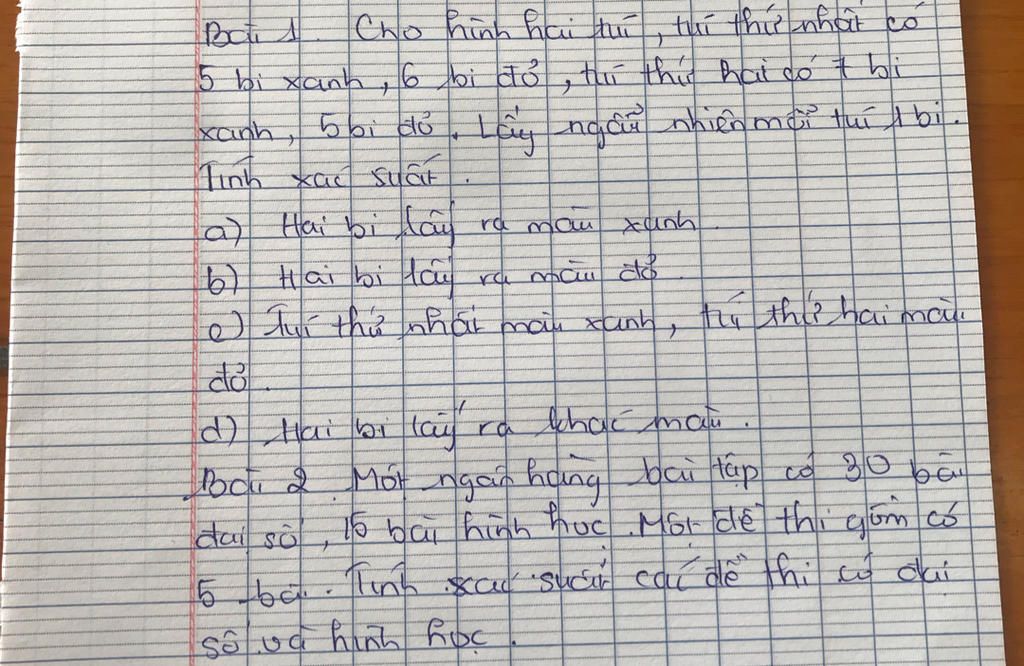 Bài 1. Cho hình hai túi, túi thứ nhất có
5 bi xanh, 6 bi đỏ, túi thứ hai có 7 bi
xanh, 5 bi đỏ. Lấy ngẫu nhiên mỗi túi 1 bi.
Tính xác suất.
a) Hai bi lấy ra màu xanh.
b) Hai bi lấy ra màu đỏ.
c) Túi thứ nhất màu xanh, tú thứ hai màu
đỏ.
d) Hai bi lấy ra khác màu.
Bài 2. Một ngân hàng bài tập có 30 bài
đại số, 15 bài hình học. Một đề thi gồm có
5 bài. Tính xác suất các đề thi có đại
số và hình học.